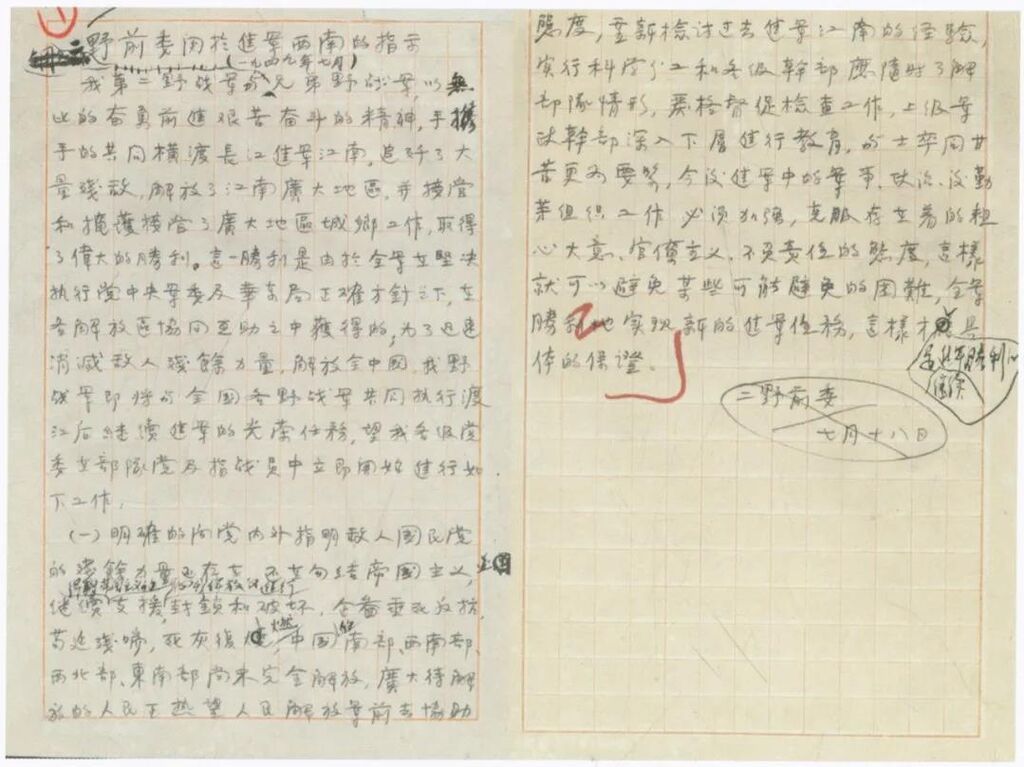 ①
二野前委关於進軍西南的指示
(一九四九年七月)
我第二野战軍与兄弟野战軍,以無
比的奋勇前進艰苦奋斗的精神,手携
手的共同横渡長江進軍江南,追歼了大
量残敌,解放了江南廣大地區,并接管
和掩護接管了廣大地區城鄉工作,取得
了偉大的勝利。這一勝利是由於全軍在堅决
执行党中央軍委及華东局正確方針之下,在
各解放區協同互助之中獲得的,为了迅速
消滅敌人殘餘力量,解放全中國,我野
战軍即将与全國各野战軍共同执行渡
江后継續進軍的光荣任務,望我各级党
委在部隊党及指战員中立即開始進行如
下工作。
(一)明確的向党内外指明敌人國民党
的殘餘力量还存在,正勾结帝國主义,
继續支援,封鎖和破坏,企圖垂死反抗,
苟延残喘,死灰復燃,中國南部、西南部、
西北部、東南部尚未完全解放,廣大待解
放的人民正热望人民解放軍前去協助
態度,重新檢讨过去進軍江南的经驗,
实行科学分工和各级幹部應随時了解
部隊情形,严格督促檢查工作,上级軍
政幹部深入下層進行教育,与士卒同甘
苦更为要緊,今後進軍中的軍事、政治、後勤
等组织工作必须加强,克服存在着的粗
心大意、官僚主义、不负責任的態度,這樣
就可以避免某些可能避免的困難,全軍
勝利地实现新的進軍任務,這樣才是具
体的保證。
二野前委
七月十八日